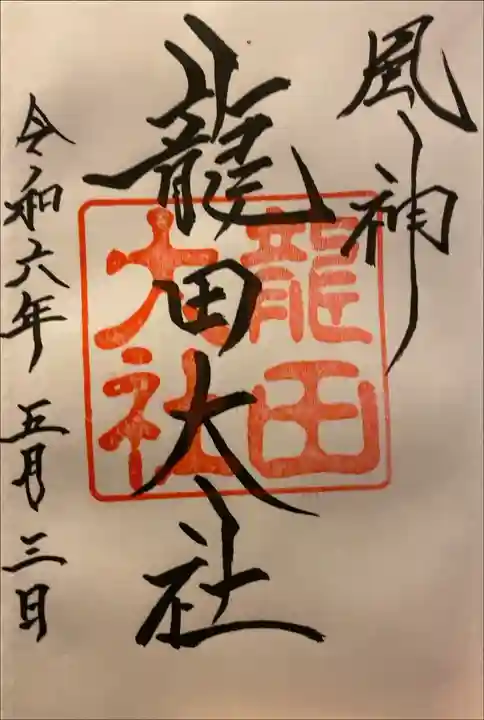 風神
龍田大社
龍田
大社
令和六年 五月三日